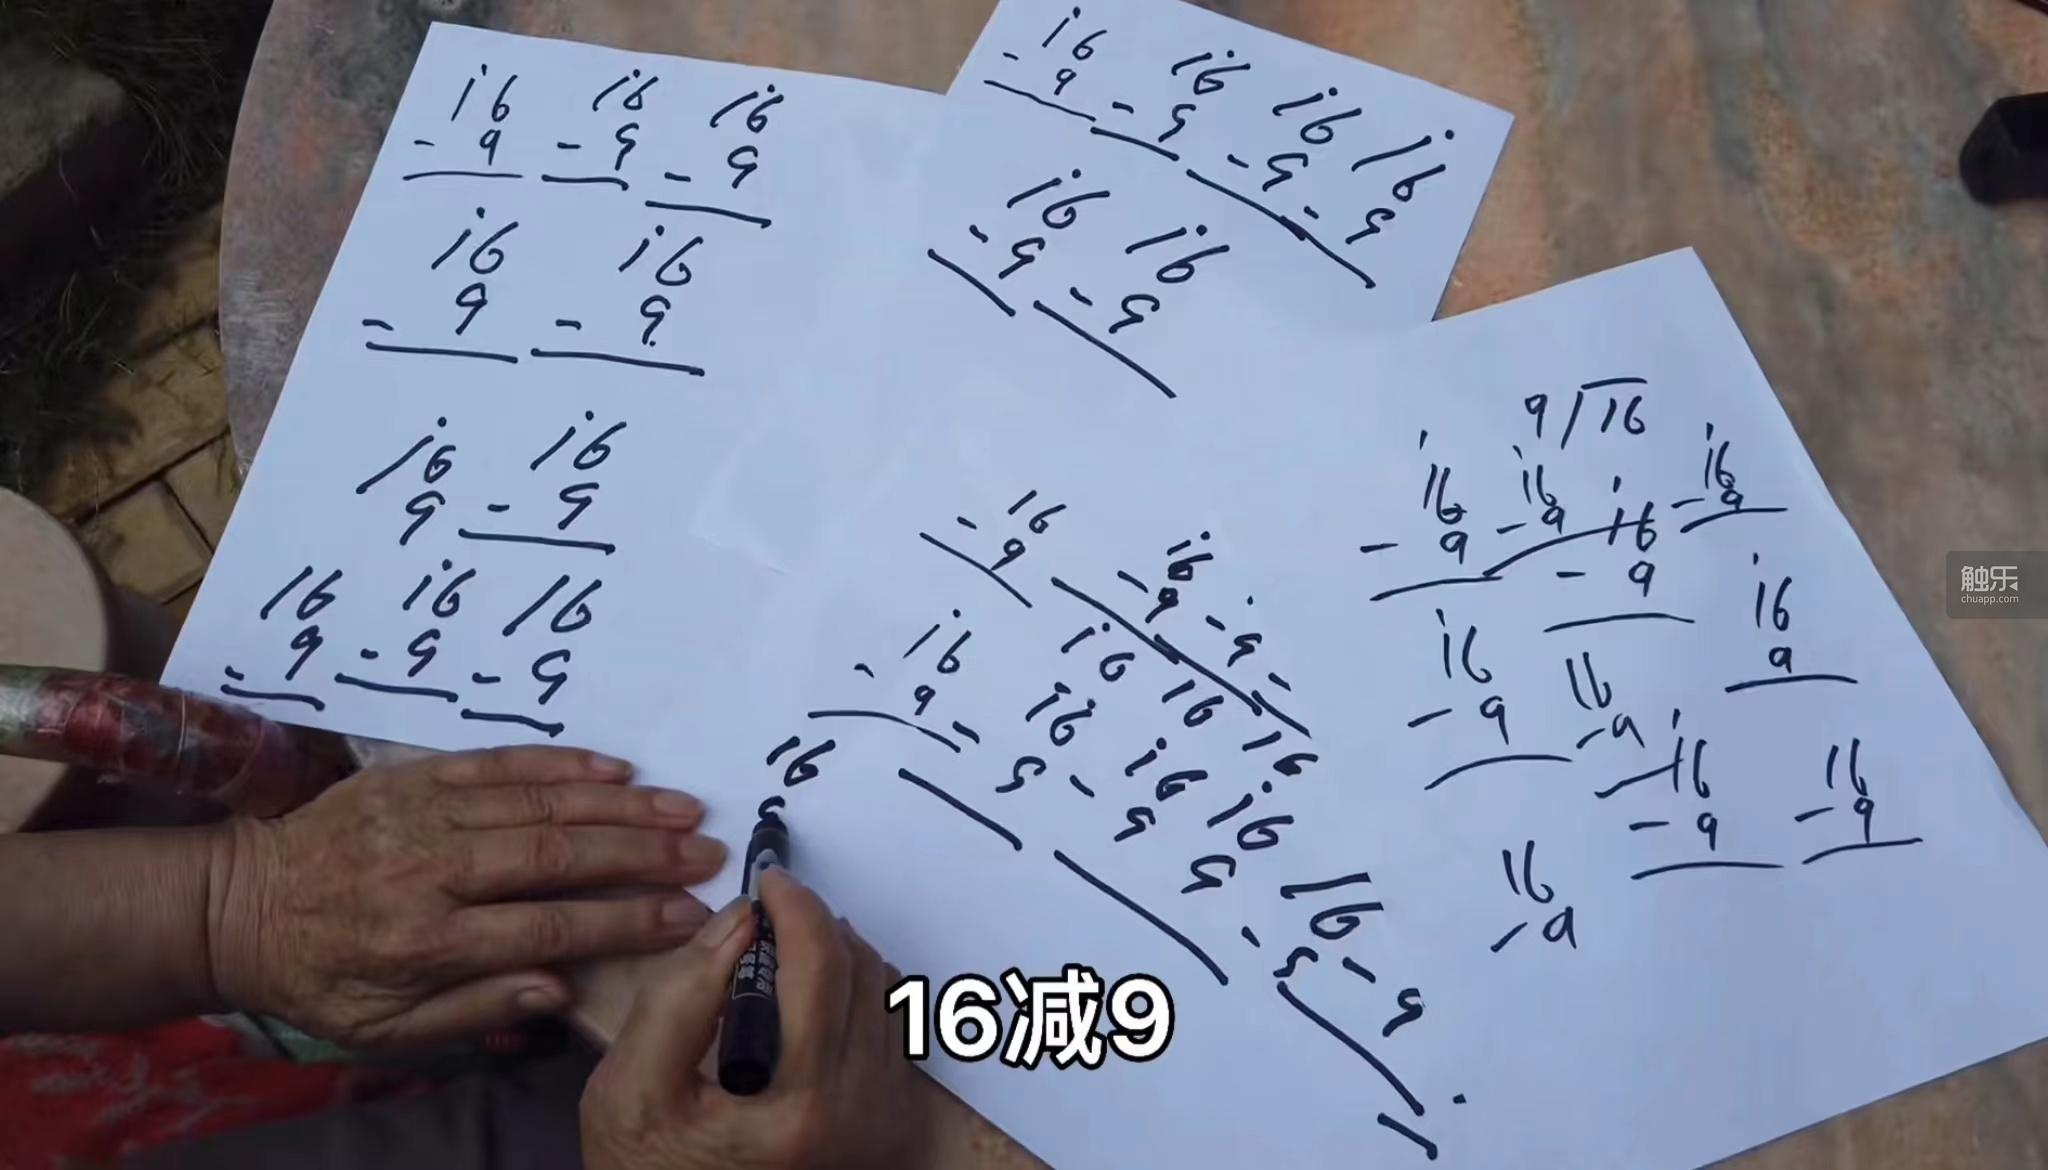 16 16 16
- 9 - 9 - 9
16 16
- 9 - 9
16 16
9 - 9
16 16 16
- 9 - 9 - 9
16 16 16 16
- 9 - 9 - 9 - 9
16 16
- 9 - 9
16 16
- 9 - 9 - 9 -
16 16 16 16
- 9
16 16 16 16
- 9 - 9 9 - 9 - 9
16
9
9/16
16 16 16 16
- 9 - 9 - 9 - 9
16 16 16
- 9 - 9 9
16 16
- 9 - 9
16
- 9
16减9
触乐
chuapp.com